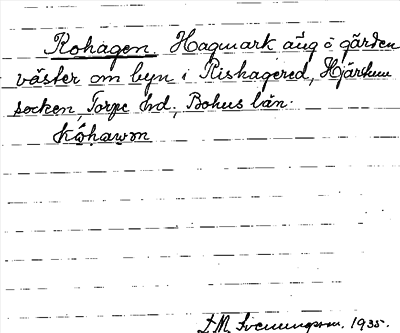 Rohagen. Hagmark äng o gärden
väster om byn i Rishagered, Hjärtum
socken, Torpe hd., Bohus län.
Kóhawən
L.M. Svenungsson. 1935.